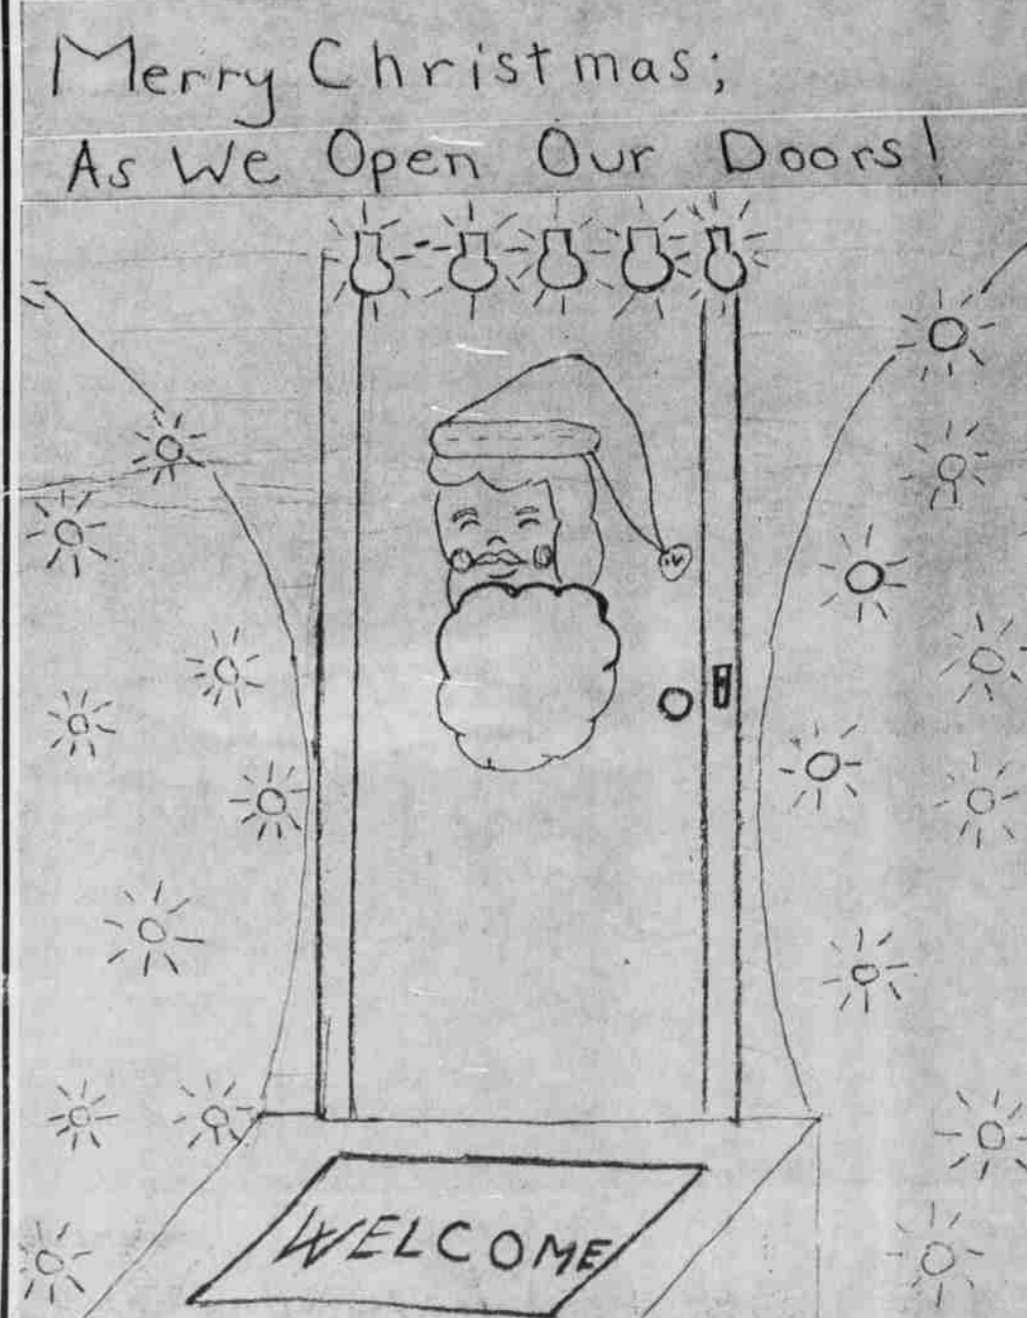 Merry Christmas;
As We Open Our Doors!
WELCOME